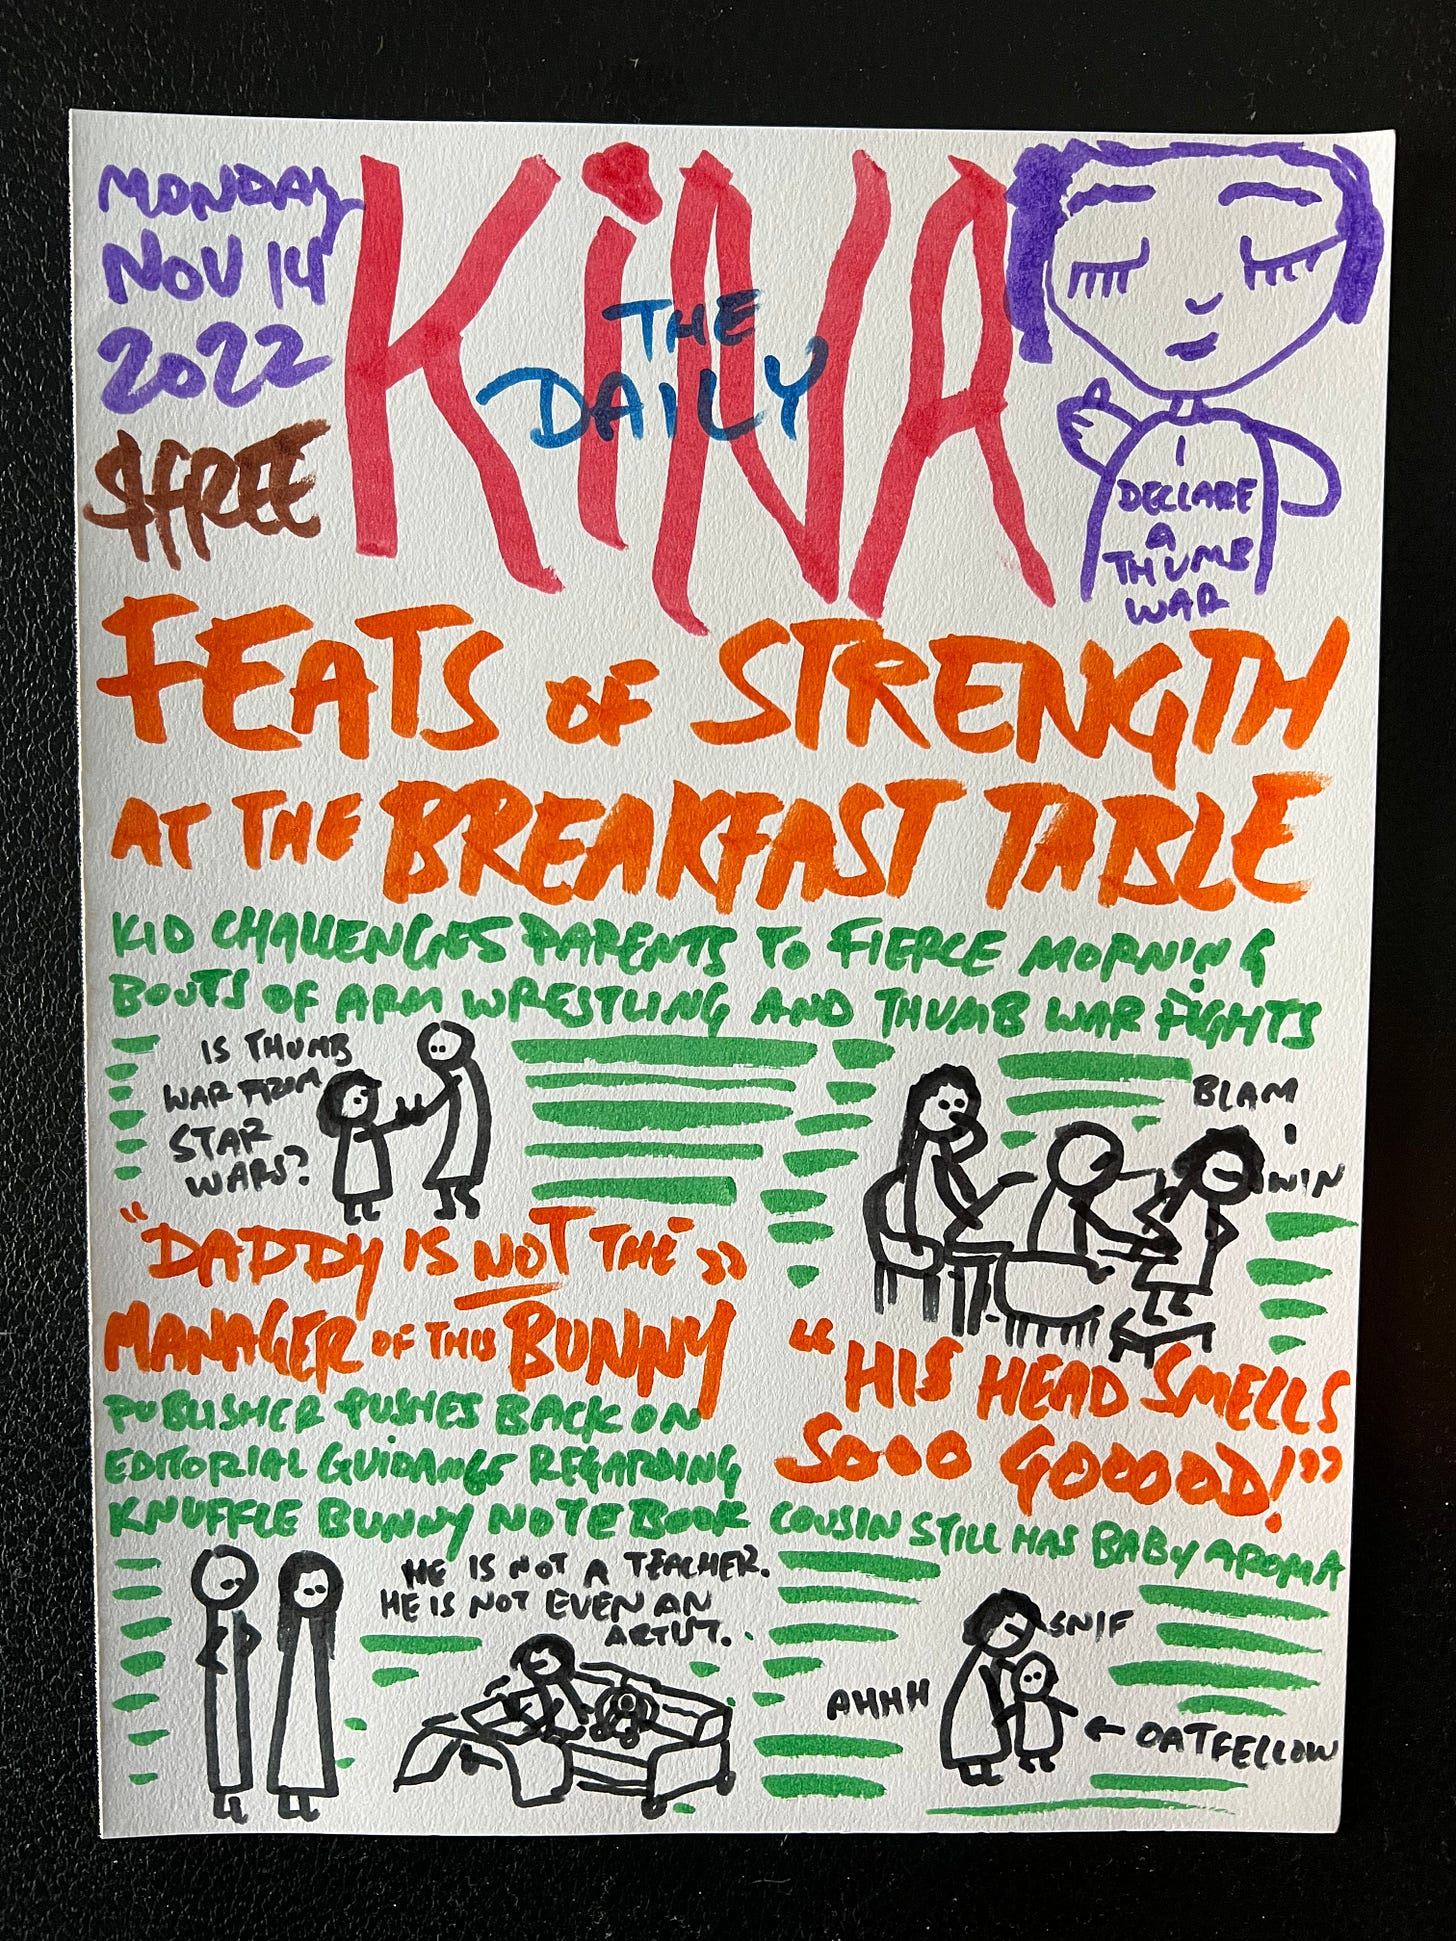 MONDAY
NOV 14
2022
$FREE
THE
DAILY
KiNA
I
DECLARE
A
THUMB
WAR
FEATS OF STRENGTH
AT THE BREAKFAST TABLE
KID CHALLENGES PARENTS TO FIERCE MORNING
BOUTS OF ARM WRESTLING AND THUMB WAR FIGHTS
IS THUMB
WAR FROM
STAR
WARS?
BLAM
I
WIN
"DADDY IS NOT THE
MANAGER OF THIS BUNNY"
PUBLISHER PUSHES BACK ON
EDITORIAL GUIDANCE REGARDING
KNUFFLE BUNNY NOTEBOOK
HE IS NOT A TEACHER.
HE IS NOT EVEN AN
ARTIST.
"HIS HEAD SMELLS
SOOO GOOOOD!"
COUSIN STILL HAS BABY AROMA
SNIF
AHHH
← OATFELLOW